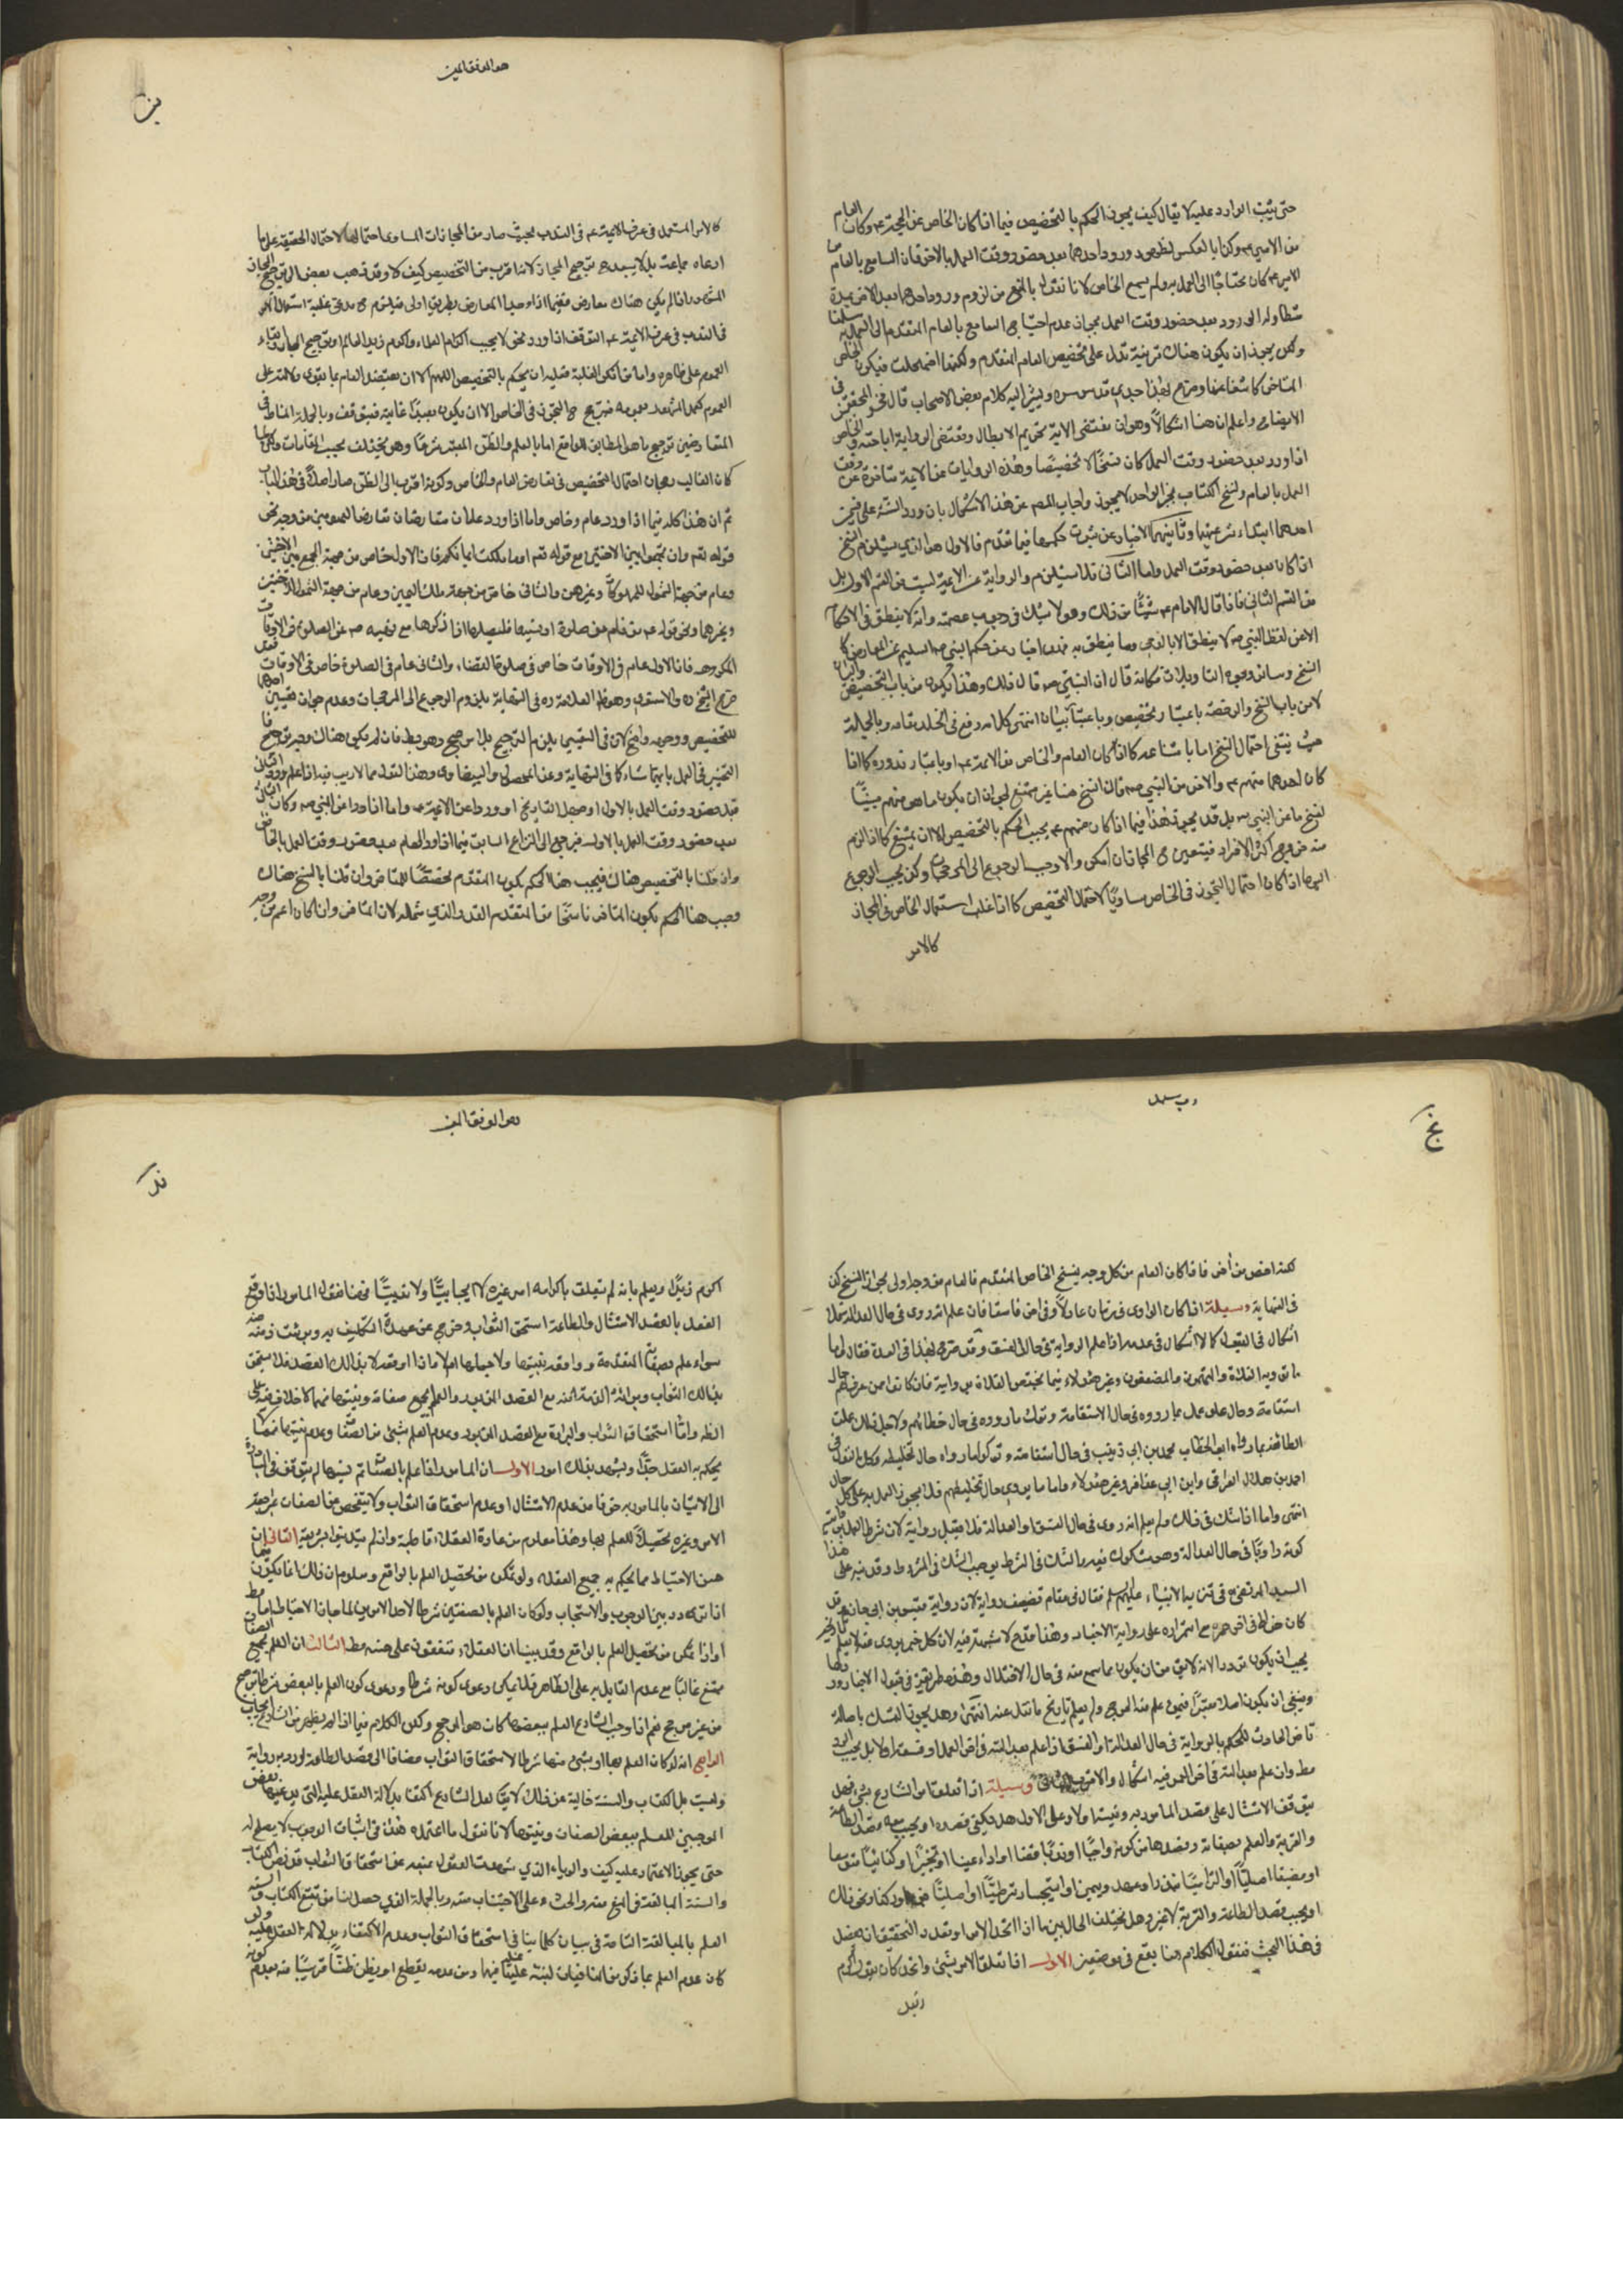 حتى يثبت الوارد عليه لا يقال كيف يجوز الحكم بالتخصيص فيما اذا كان الخاص عن الحجة ع وكان العام
من الامير ع وكذا بالعكس لظهور ورود احدهما بعد حضور وقت العمل بالاخر فان السامع بالعام
الامير ع كان محتاجا الى العمل به ولم يسمع الخاص لانا نقول بالمنع من لزوم ورود احدهما بعد الاخر بمدة
متطاولة الورود بعد حضور وقت العمل بجواز عدم احتياج السامع بالعام المتقدم الى العمل به سلمنا
ولكن يجوز ان يكون هناك قرينة تدل على تخصيص العام المتقدم ولكنها اضمحلت فيكون الخاص
المتاخر كاشفا عنها وصرح بهذا جدي قدس سره ويشير اليه كلام بعض الاصحاب قال فخر المحققين في
الايضاح واعلم ان هنا اشكالا وهو ان مقتضى الاية تحريم الابطال ومقتضى الرواية اباحته والخاص
اذا ورد بعد حضور وقت العمل كان نسخا لا تخصيصا وهذه الروايات عن الائمة متاخرة عن وقت
العمل بالعام ونسخ الكتاب بخبر الواحد لا يجوز واجاب المصنف عن هذا الاشكال بان ورود السنة على قسمين
احدهما ابتداء شرعيتها وثانيهما الاخبار عن ثبوت حكمها فيما تقدم فالاول هو الذي يستلزم النسخ
اذا كان بعد حضور وقت العمل واما الثاني فلا يستلزم والرواية عن الائمة ليست من القسم الاول بل
من القسم الثاني فاذا قال الامام ع شيئا من ذلك وهو لا يشك في وجوب عصمته وانه لا ينطق في الاحكام
الا عن لفظ النبي ص لا ينطق الا بالوحي وما ينطق به فهو اخبار عن حكم النبي ص السليم عن المعارض كا
النسخ وسائر وجوه التاويلات فكانه قال ان النبي ص قال ذلك وهذا يكون من باب التخصيص والبيان
لا من باب النسخ والرخصة باعتبار وتخصيص وباعتبار بيان انتهى كلامه رفع في الخلد مقامه وبالجملة
حيث ينتفي احتمال النسخ اما بامتناعه كما اذا كان العام والخاص من الائمة ع او باعتبار ندوره كما اذا
كان احدهما منهم ع والاخر من النبي ص فان النسخ هنا غير ممتنع لجواز ان يكون ما هو منهم مبينا
لنسخ ما عن النبي ص بل قد يجوز هذا فيما اذا كان منهم ع يجب الحكم بالتخصيص الا ان يمتنع كما اذا لزم
منه خروج اكثر الافراد فيتعين ح المجاز ان امكن والا وجب الرجوع الى المرجحات وكذا يجب الرجوع
اليها اذا كان احتمال التجوز في الخاص مساويا لاحتمال التخصيص كما اذا غلب استعمال الخاص في المجاز
كالامر
هو الموفق المعين
كالامر المستعمل في عرف الائمة ع في الندب بحيث صار من المجازات المساوي احتمالها لاحتمال الحقيقة على ما
ادعاه جماعة بل لا يبعد ح ترجيح المجاز لانه اقرب من التخصيص كيف لا وقد ذهب بعض الى ترجيح المجاز
في الندب في عرف الائمة ع التوقف اذا ورد نحو لا يجب اكرام العلماء واكرم زيدا العالم او ترجيح المجاز وابقاء
العموم على ظاهره واما من انكر الغلبة فعليه ان يحكم بالتخصيص اللهم الا ان يعتضد العام بما يقوى دلالته على
المتعارضين ترجيح ما هو المطابق للواقع اما بالعلم والظن المعتبر شرعا وهو يختلف بحسب المقامات ولكن لما
كان الغالب رجحان احتمال التخصيص في تعارض العام والخاص وكونه اقرب الى الظن صار اصلا في هذا الباب
ثم ان هذا كله فيما اذا ورد عام وخاص واما اذا ورد عامان متعارضان تعارض العمومين من وجه نحو
قوله تعالى وان تجمعوا بين الاختين مع قوله تعالى او ما ملكت ايمانكم فان الاول خاص من جهة الجمع بين الاختين
وعام من جهة الشمول للمملوكة وغيرهن والثاني خاص من جهة ملك اليمين وعام من جهة الشمول للاختين
وغيرهما ونحو قوله ع من نام عن صلوة او نسيها فليصلها اذا ذكرها مع نهيه ص عن الصلوة في الاوقات
المكروهة فان الاول عام في الاوقات خاص في صلوة القضاء والثاني عام في الصلوة خاص في الاوقات فقد
صرح الشيخ ره والاستاد وهو ظاهر العلامة ره في النهاية بلزوم الرجوع الى المرجحات وعدم جواز تعيين احدهما
للتخصيص ووجهه واضح لان في التعيين يلزم الترجيح بلا مرجح وهو بط فان لم يكن هناك مرجح
التخيير في العمل بايهما شاء كما في النهاية وعن المحصول والبيضاوي وهذا القول مما لا ريب فيه اذا علم ورود الثاني
قبل حضور وقت العمل بالاول او جهل التاريخ او وردا عن الائمة ع واما اذا وردا عن النبي ص وكان الثاني
بعد حضور وقت العمل بالاول فيرجع الى النزاع السابق فيما اذا ورد العام بعد حضور وقت العمل بالخاص
وان قلنا بالتخصيص هناك فيجب هنا الحكم بكون المتقدم مخصصا للمتاخر وان قلنا بالنسخ هناك
وجب هنا الحكم بكون المتاخر ناسخا من المتقدم القدر الذي شمله لان المتاخر وان كان اعم من وجه
رب سهل
لكنه اخص من اخر فاذا كان العام من كل وجه ينسخ الخاص المتقدم فالعام من وجه اولى بجواز النسخ كذا
في النهاية وسيلة اذا كان الراوي في زمان عادلا وفي اخر فاسقا فان علم انه روى في حال العدالة فلا
اشكال في القبول كما لا اشكال في عدمه اذا علم الرواية في حال الفسق وقد صرح بهذا في العدة فقال اما
ما ترويه الغلاة والمتهمون والمضعفون وغير هؤلاء فيما يختص الغلاة بروايته فان كانوا ممن عرف لهم حال
استقامة وحال غلو عمل بما رووه في حال الاستقامة وترك ما رووه في حال خطائهم ولاجل ذلك عملت
الطائفة بما رواه ابو الخطاب محمد بن ابي زينب في حال استقامته وتركوا ما رواه حال تخليطه وكذا القول في
احمد بن هلال العبرتائي وابن ابي عذافر وغير هؤلاء واما ما يروي حال تخليطهم فلا يجوز العمل به على كل حال
انتهى واما اذا شك في ذلك ولم يعلم انه روى في حال الفسق او العدالة فلا تقبل روايته لان شرط العمل
كونه راويا في حال العدالة وهو مشكوك فيه والشك في الشرط يوجب الشك في المشروط وقد نبه على هذا
السيد المرتضى في تنزيه الانبياء عليهم السلام فقال في مقام تضعيف رواية لان رواية قيس بن ابي حازم وقد
كان خولط في اخر عمره مع استمراره على رواية الاخبار وهذا قدح لا شبهة فيه لان كل خبر يروى عنه لا يعلم تاريخه
يجب ان يكون مردودا لانه لا يؤمن ان يكون مما سمع منه في حال الاختلال وهذه طريقة في قبول الاخبار وردها
وينبغي ان يكون اصلا معتبرا فيمن علم منه الخروج ولم يعلم تاريخ ما نقل عنه انتهى وهل يجوز التمسك باصالة
تاخر الحادث للحكم بالرواية في حال العدالة او الفسق اذا علم عدالته في اخر العمل او فسقه او لا بل يجب الرد
مط وان علم عدالته في اخر العمر فيه اشكال والاقرب الثاني وسيلة اذا تعلق امر الشارع بشيء فهل
يتوقف الامتثال على قصد المامور به ونيته او لا وعلى الاول هل يكفي قصده او يجب معه قصد الطاعة
والقربة والعلم بصفاته وقصدها من كونه واجبا او ندبا قضاء او اداء عينا او تخيرا او كفائيا موسعا
او يجب قصد الطاعة والقربة لا غير وهل يختلف الحال بين ما اذا اتحد الامر او تعدد والتحقيق ان يفصل
في هذا البحث فنقول الكلام هنا يقع في موضعين الاول اذا تعلق الامر بشيء واتحد كان يقول اكرم
هو الموفق المعين
اكرم زيدا ويعلم بانه لم يتعلق باكرامه امر غيره لا ايجابيا ولا ندبيا فهنا نقول المامور اذا اوقع
الفعل بالقصد الامتثال والطاعة استحق الثواب وخرج عن عهدة التكليف به وبرئت ذمته منه
سواء علم بصفاته المتقدمة وواقعه بنيتها ولا جهلها ام لا واما اذا اوقعه لا بذلك القصد فلا يستحق
بذلك الثواب وبرائة الذمة منه مع القصد المزبور والعلم بجميع صفاته ونيتها فمما لا خلاف فيه على
الظاهر واما استحقاق الثواب والبرائة مع القصد المزبور وعدم العلم بشيء من الصفات وعدم نيتها فمما لا
يحكم به العقل جدا ويشهد بذلك امور الاول ان المامور اذا علم بالصفات ثم نسيها لم يتوقف في المبادرة
الى الاتيان بالمامور به خوفا من عدم الامتثال او عدم استحقاق الثواب ولا يتفحص عن الصفات بمراجعة
الامر وغيره تحصيلا للعلم بها وهذا معلوم من عادة العقلاء قاطبة وان لم يتدينوا بشريعة الثاني ان
حسن الاحتياط مما يحكم به جميع العقلاء ولو تمكن من تحصيل العلم بالواقع ومعلوم ان ذلك انما يكون
اذا تردد بين الوجوب والاستحباب ولو كان العلم بالصفتين شرطا لاحد الامرين لما جاز الاحتياط اما مط
او اذا تمكن من تحصيل العلم بالواقع وقد بينا ان العقلاء متفقون على حسنه مط الثالث ان العلم بجميع الصفات
ممتنع غالبا مع عدم القائل به على الظاهر فلا يمكن دعوى كونه شرطا ودعوى كون العلم بالبعض شرطا ترجيح
من غير مرجح نعم اذا وجب الشارع العلم ببعضها كان هو المرجح ولكن الكلام فيما اذا لم يظهر من الشارع ايجاب
الرابع انه لو كان العلم بها او بشيء منها شرطا لاستحقاق الثواب مضافا الى قصد الطاعة لورد به رواية
وليست بل الكتاب والسنة خالية عن ذلك لا يقال لعل الشارع اكتفى بدلالة العقل عليه التي يدعيها بعض
الموجبين للعلم ببعض الصفات ونيتها لانا نقول ما اعتمده هذا في اثبات الوجوب لا يصلح له
حتى يجوز الاعتماد عليه كيف والرياء الذي شهدت العقول بمنعه عن استحقاق الثواب قد نص الكتاب
والسنة المبالغة في المنع منه والحث على الاجتناب منه وبالجملة الذي حصل لنا من تتبع الكتاب والسنة
العلم بالمبالغة التامة في بيان كلما ينافي استحقاق الثواب وعدم الاكتفاء بدلالة العقل عليه ولو
كان عدم العلم بما ذكر من المنافيات لنبه عليه فيها ومن عدمه يقطع او يظن ظنا قريبا منه بعدم كونه